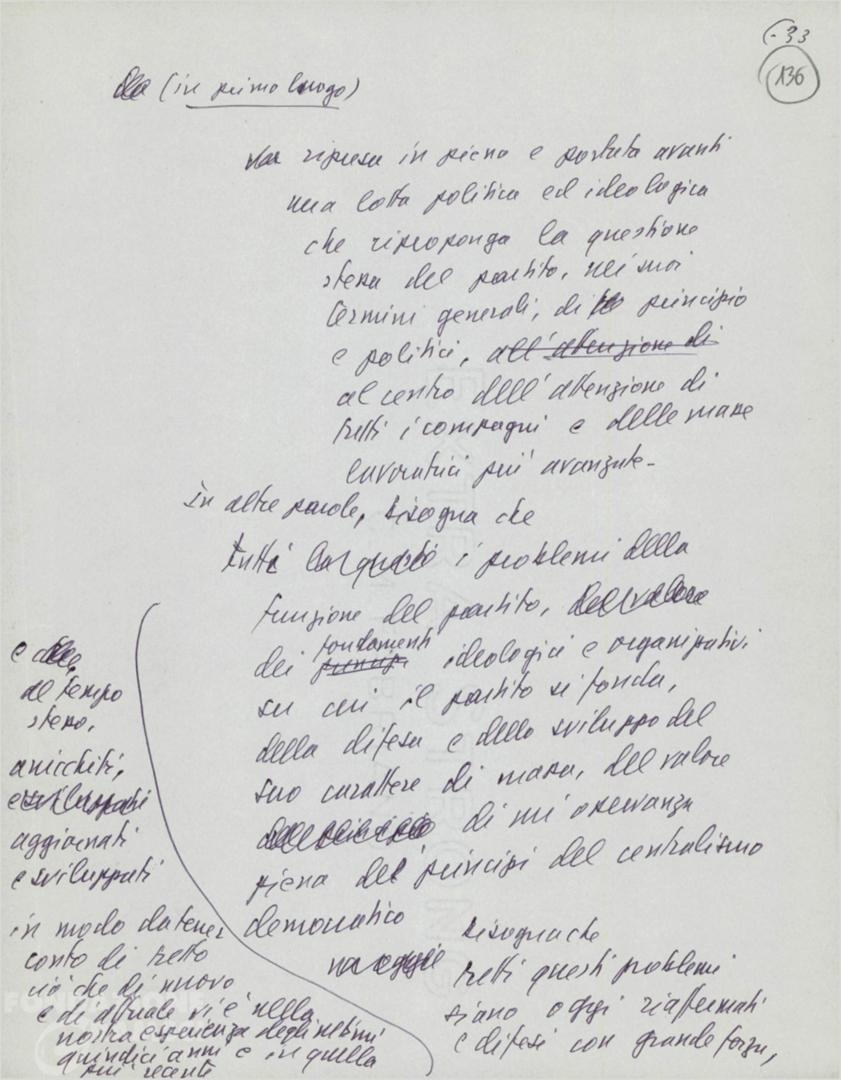 (-33
136
(in primo luogo)
sia ripresa in pieno e portata avanti
una lotta politica ed ideologica
che riproponga la questione
stessa del partito, nei suoi
termini generali, di principio
e politici, all'attenzione di
al centro dell'attenzione di
tutti i compagni e delle masse
lavoratrici più avanzate -
In altre parole, bisogna che
tutti i problemi della
funzione del partito, del valore
fondamenti
dei ideologici e organizzativi
su cui il partito si fonda,
della difesa e dello sviluppo del
suo carattere di massa, del valore
di un'osservanza
piena dei principi del centralismo
democratico
ma oggi
bisogna che
tutti questi problemi
siano oggi riaffermati
e difesi con grande forza,
e
al tempo
stesso,
arricchiti,
e sviluppati
aggiornati
e sviluppati
in modo da tener
conto di tutto
ciò che di nuovo
e di attuale vi è nella
nostra esperienza degli ultimi
quindici anni e in quella
più recente